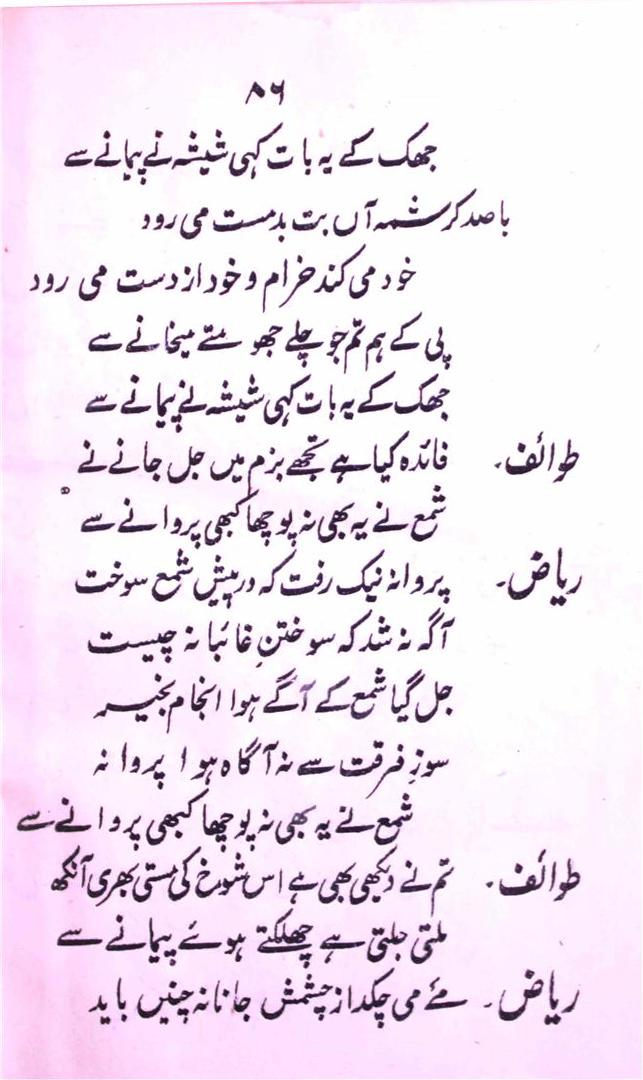 ۵۶
جھک کے یہ بات کہی شیشہ نے پیمانے سے
باصد کرشمہ آں بت بدمست می رود
خود می کند خرام و خود از دست می رود
پی کے ہم تم جو چلے جھومتے میخانے سے
جھک کے یہ بات کہی شیشہ نے پیمانے سے
طوائف۔ فائدہ کیا ہے تجھے بزم میں جل جانے نے
شمع نے یہ بھی نہ پوچھا کبھی پروانے سے
ریاض۔ پروانہ نیک رفت کہ در پیش شمع سوخت
آگہ نہ شد کہ سوختنِ غائبانہ چیست
جل گیا شمع کے آگے ہوا انجام بخیر
سوزِ فرقت سے نہ آگاہ ہوا پروانہ
شمع نے یہ بھی نہ پوچھا کبھی پروانے سے
طوائف۔ تم نے دیکھی بھی ہے اس شوخ کی مستی بھری آنکھ
ملتی جلتی ہے چھلکتے ہوئے پیمانے سے
ریاض۔ مئے می چکد از چشمش جانانہ چنیں باید